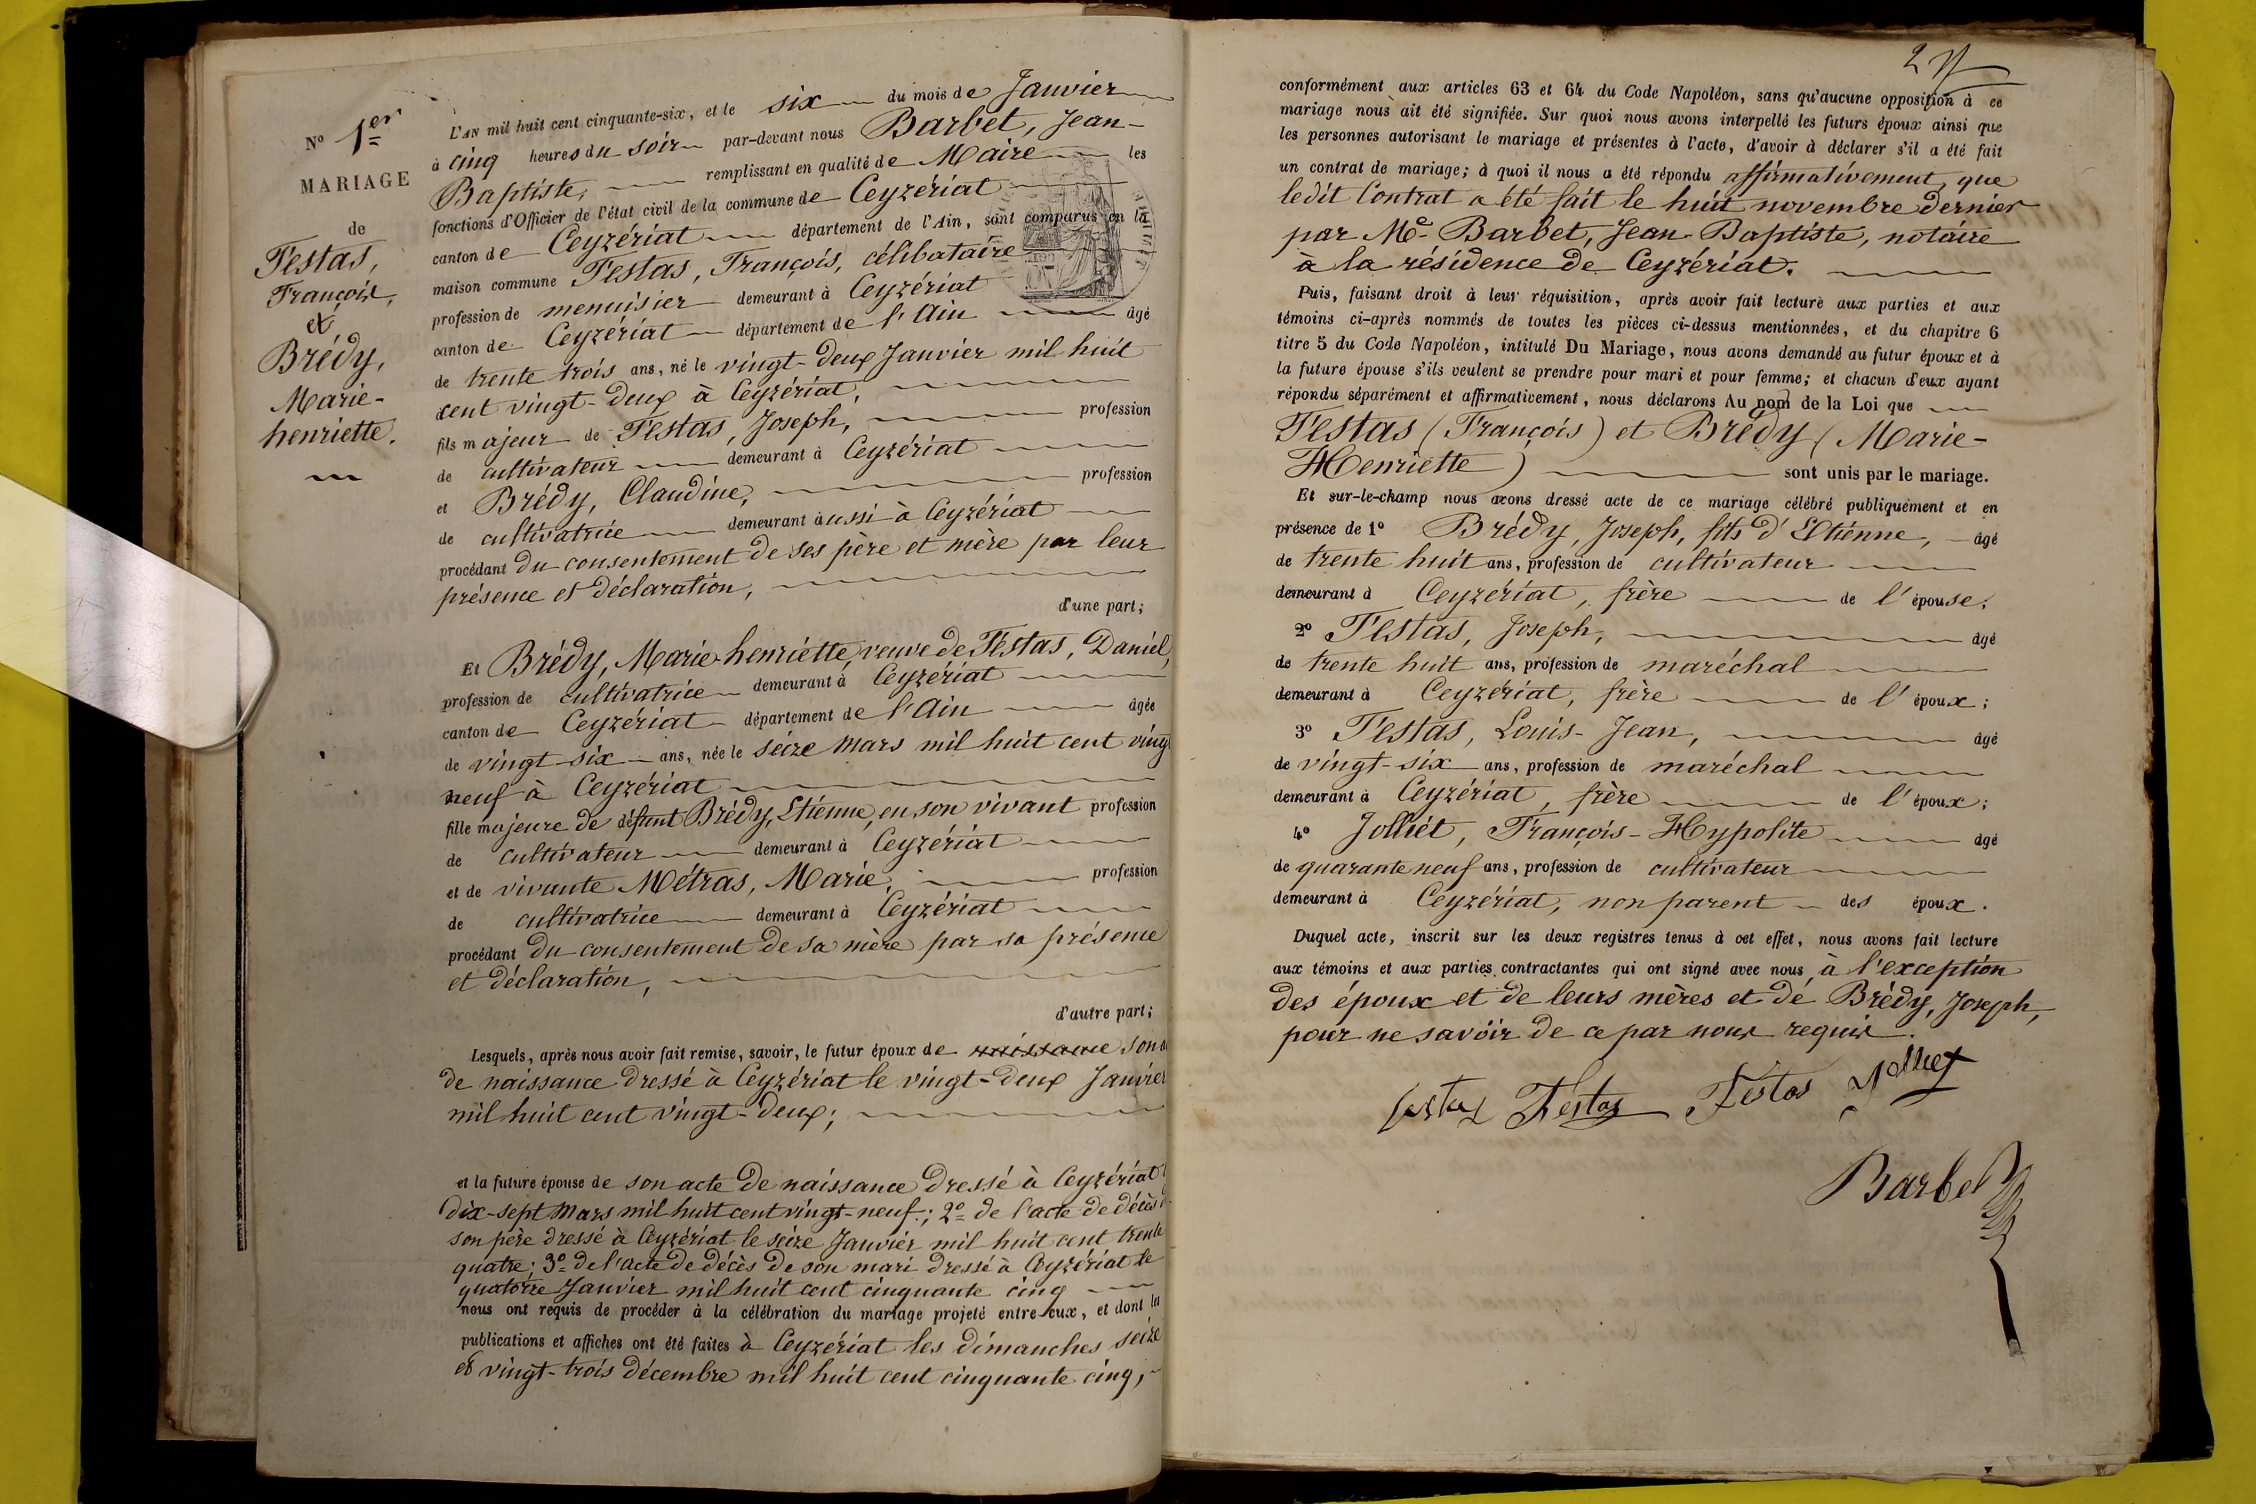 N° 1er
MARIAGE
de
Festas,
François,
et
Brédy,
Marie-
henriette.
L'AN mil huit cent cinquante-six, et le six du mois de Janvier
à cinq heures du soir par-devant nous Barbet, Jean-
Baptiste, remplissant en qualité de Maire les
fonctions d'Officier de l'état civil de la commune de Ceyzériat
canton de Ceyzériat département de l'Ain, sont comparus en la
maison commune Festas, François, célibataire
profession de menuisier demeurant à Ceyzériat
canton de Ceyzériat département de l'Ain âgé
de trente trois ans, né le vingt-deux Janvier mil huit
cent vingt-deux à Ceyzériat,
fils majeur de Festas, Joseph, profession
de cultivateur demeurant à Ceyzériat
et Brédy, Claudine, profession
de cultivatrice demeurant aussi à Ceyzériat
procédant du consentement de ses père et mère par leur
présence et déclaration,
d'une part;
Et Brédy, Marie henriette, veuve de Festas, Daniel,
profession de cultivatrice demeurant à Ceyzériat
canton de Ceyzériat département de l'Ain âgée
de vingt-six ans, née le seize mars mil huit cent vingt
neuf à Ceyzériat
fille majeure de défunt Brédy, Etienne, en son vivant profession
de cultivateur demeurant à Ceyzériat
et de vivante Métras, Marie, profession
de cultivatrice demeurant à Ceyzériat
procédant du consentement de sa mère par sa présence
et déclaration,
d'autre part;
Lesquels, après nous avoir fait remise, savoir, le futur époux de naissance son
de naissance dressé à Ceyzériat le vingt-deux Janvier
mil huit cent vingt-deux;
et la future épouse de son acte de naissance dressé à Ceyzériat
dix-sept mars mil huit cent vingt-neuf; 2° de l'acte de décès
son père dressé à Ceyzériat le seize Janvier mil huit cent trente
quatre; 3° de l'acte de décès de son mari dressé à Ceyzériat le
quatorze Janvier mil huit cent cinquante cinq
nous ont requis de procéder à la célébration du mariage projeté entre eux, et dont les
publications et affiches ont été faites à Ceyzériat les dimanches seize
et vingt-trois décembre mil huit cent cinquante cinq,
2
conformément aux articles 63 et 64 du Code Napoléon, sans qu'aucune opposition à ce
mariage nous ait été signifiée. Sur quoi nous avons interpellé les futurs époux ainsi que
les personnes autorisant le mariage et présentes à l'acte, d'avoir à déclarer s'il a été fait
un contrat de mariage; à quoi il nous a été répondu affirmativement, que
ledit Contrat a été fait le huit novembre dernier
par Me Barbet, Jean-Baptiste, notaire
à la résidence de Ceyzériat.
Puis, faisant droit à leur réquisition, après avoir fait lecture aux parties et aux
témoins ci-après nommés de toutes les pièces ci-dessus mentionnées, et du chapitre 6
titre 5 du Code Napoléon, intitulé Du Mariage, nous avons demandé au futur époux et à
la future épouse s'ils veulent se prendre pour mari et pour femme; et chacun d'eux ayant
répondu séparément et affirmativement, nous déclarons Au nom de la Loi que
Festas (François) et Brédy (Marie-
Henriette) sont unis par le mariage.
Et sur-le-champ nous avons dressé acte de ce mariage célébré publiquement et en
présence de 1° Brédy, Joseph, fils d'Etienne, âgé
de trente huit ans, profession de cultivateur
demeurant à Ceyzériat, frère de l'épouse.
2° Festas, Joseph, âgé
de trente huit ans, profession de maréchal
demeurant à Ceyzériat, frère de l'époux;
3° Festas, Louis-Jean, âgé
de vingt-six ans, profession de maréchal
demeurant à Ceyzériat, frère de l'époux;
4° Jolliet, François-Hypolite âgé
de quarante neuf ans, profession de cultivateur
demeurant à Ceyzériat, non parent des époux.
Duquel acte, inscrit sur les deux registres tenus à cet effet, nous avons fait lecture
aux témoins et aux parties contractantes qui ont signé avec nous à l'exception
des époux et de leurs mères et de Brédy, Joseph,
pour ne savoir de ce par nous requis.
festas Festas Festas Jolliet
Barbet